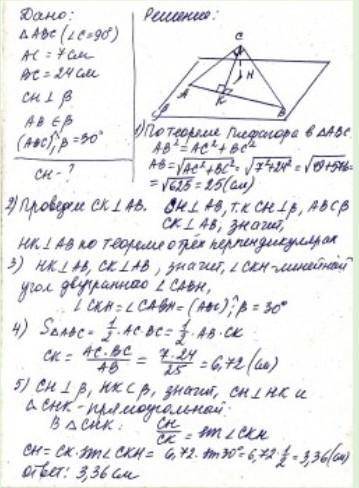 Дано:
△ABC (∠C=90°)
AC = 7см
BC = 24см
CH ⊥ β
AB ∈ β
(ABC)^β = 30°
CH - ?
Решение:
C
H
A
K
B
β
1) По теореме Пифагора в △ABC
AB² = AC² + BC²
AB = √AC²+BC² = √7²+24² = √49+576 =
= √625 = 25 (см)
2) Проведем CK ⊥ AB. CH ⊥ AB, т.к CH ⊥ β, AB ⊂ β
CK ⊥ AB, значит,
HK ⊥ AB по теореме о трех перпендикулярах
3) HK ⊥ AB, CK ⊥ AB, значит, ∠CKH - линейный
угол двугранного ∠CABH,
∠CKH = ∠CABH = (ABC)^β = 30°
4) S△ABC = 1/2 · AC · BC = 1/2 · AB · CK
CK = AC · BC / AB = 7 · 24 / 25 = 6,72 (см)
5) CH ⊥ β, HK ⊂ β, значит, CH ⊥ HK и
△CHK - прямоугольный.
В △CHK: CH / CK = sin ∠CKH
CH = CK · sin ∠CKH = 6,72 · sin 30° = 6,72 · 1/2 = 3,36 (см)
ответ: 3,36 см